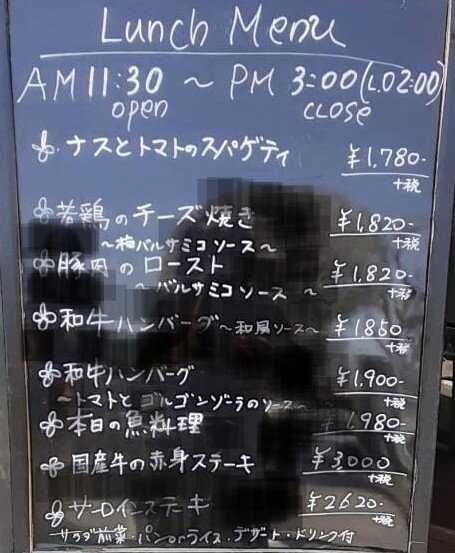 Lunch Menu
AM 11:30 ~ PM 3:00(L.O2:00)
open close
ナスとトマトのスパゲティ ¥1,780-
+税
若鶏のチーズ焼き ¥1,820-
~梅バルサミコソース~ +税
豚肉のロースト ¥1,820-
~バルサミコソース~ +税
和牛ハンバーグ~和風ソース~ ¥1850
+税
和牛ハンバーグ ¥1,900-
~トマトとゴルゴンゾーラのソース~ +税
本日の魚料理 ¥1,980-
+税
国産牛の赤身ステーキ ¥3,000
+税
サーロインステーキ ¥2620-
+税
サラダ前菜・パンorライス・デザート・ドリンク付